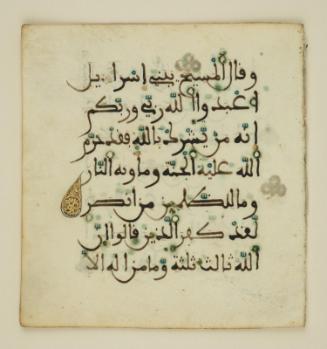 وقال المسيح يبني اسراءيل
اعبدوا الله ربي وربكم
انه من يشرك بالله فقد حرم
الله عليه الجنة وماويه النار
وما للظلمين من انصر
لقد كفر الذين قالوا ان
الله ثالث ثلثة وما من اله الا